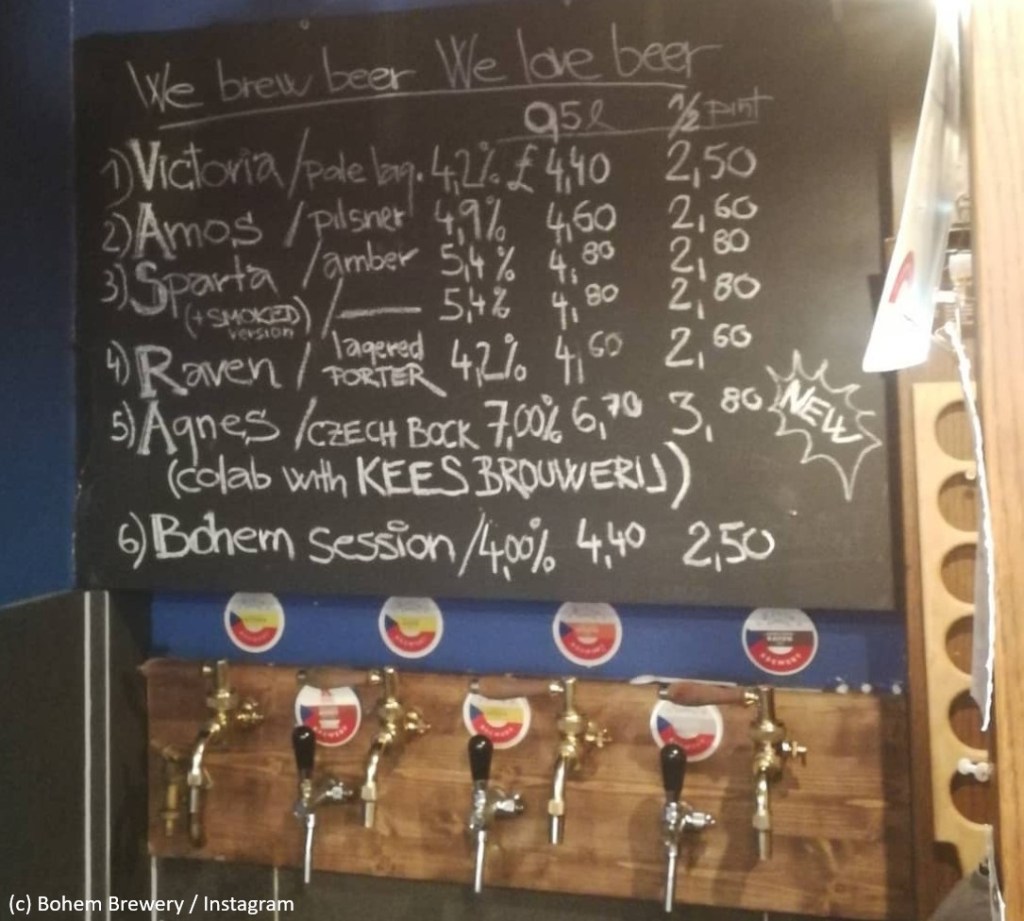 We brew beer We love beer
0,5l 1/2 pint
1) Victoria / pale lag. 4,2% £ 4,40 2,50
2) Amos / pilsner 4,9% 4,60 2,60
3) Sparta / amber 5,4% 4,80 2,80
(+ SMOKED version) / — 5,4% 4,80 2,80
4) Raven / lagered PORTER 4,2% 4,60 2,60
5) Agnes / CZECH BOCK 7,00% 6,70 3,80 NEW
(colab with KEES BROUWERIJ)
6) Bohem session / 4,00% 4,40 2,50
BREWERY
(c) Bohem Brewery / Instagram